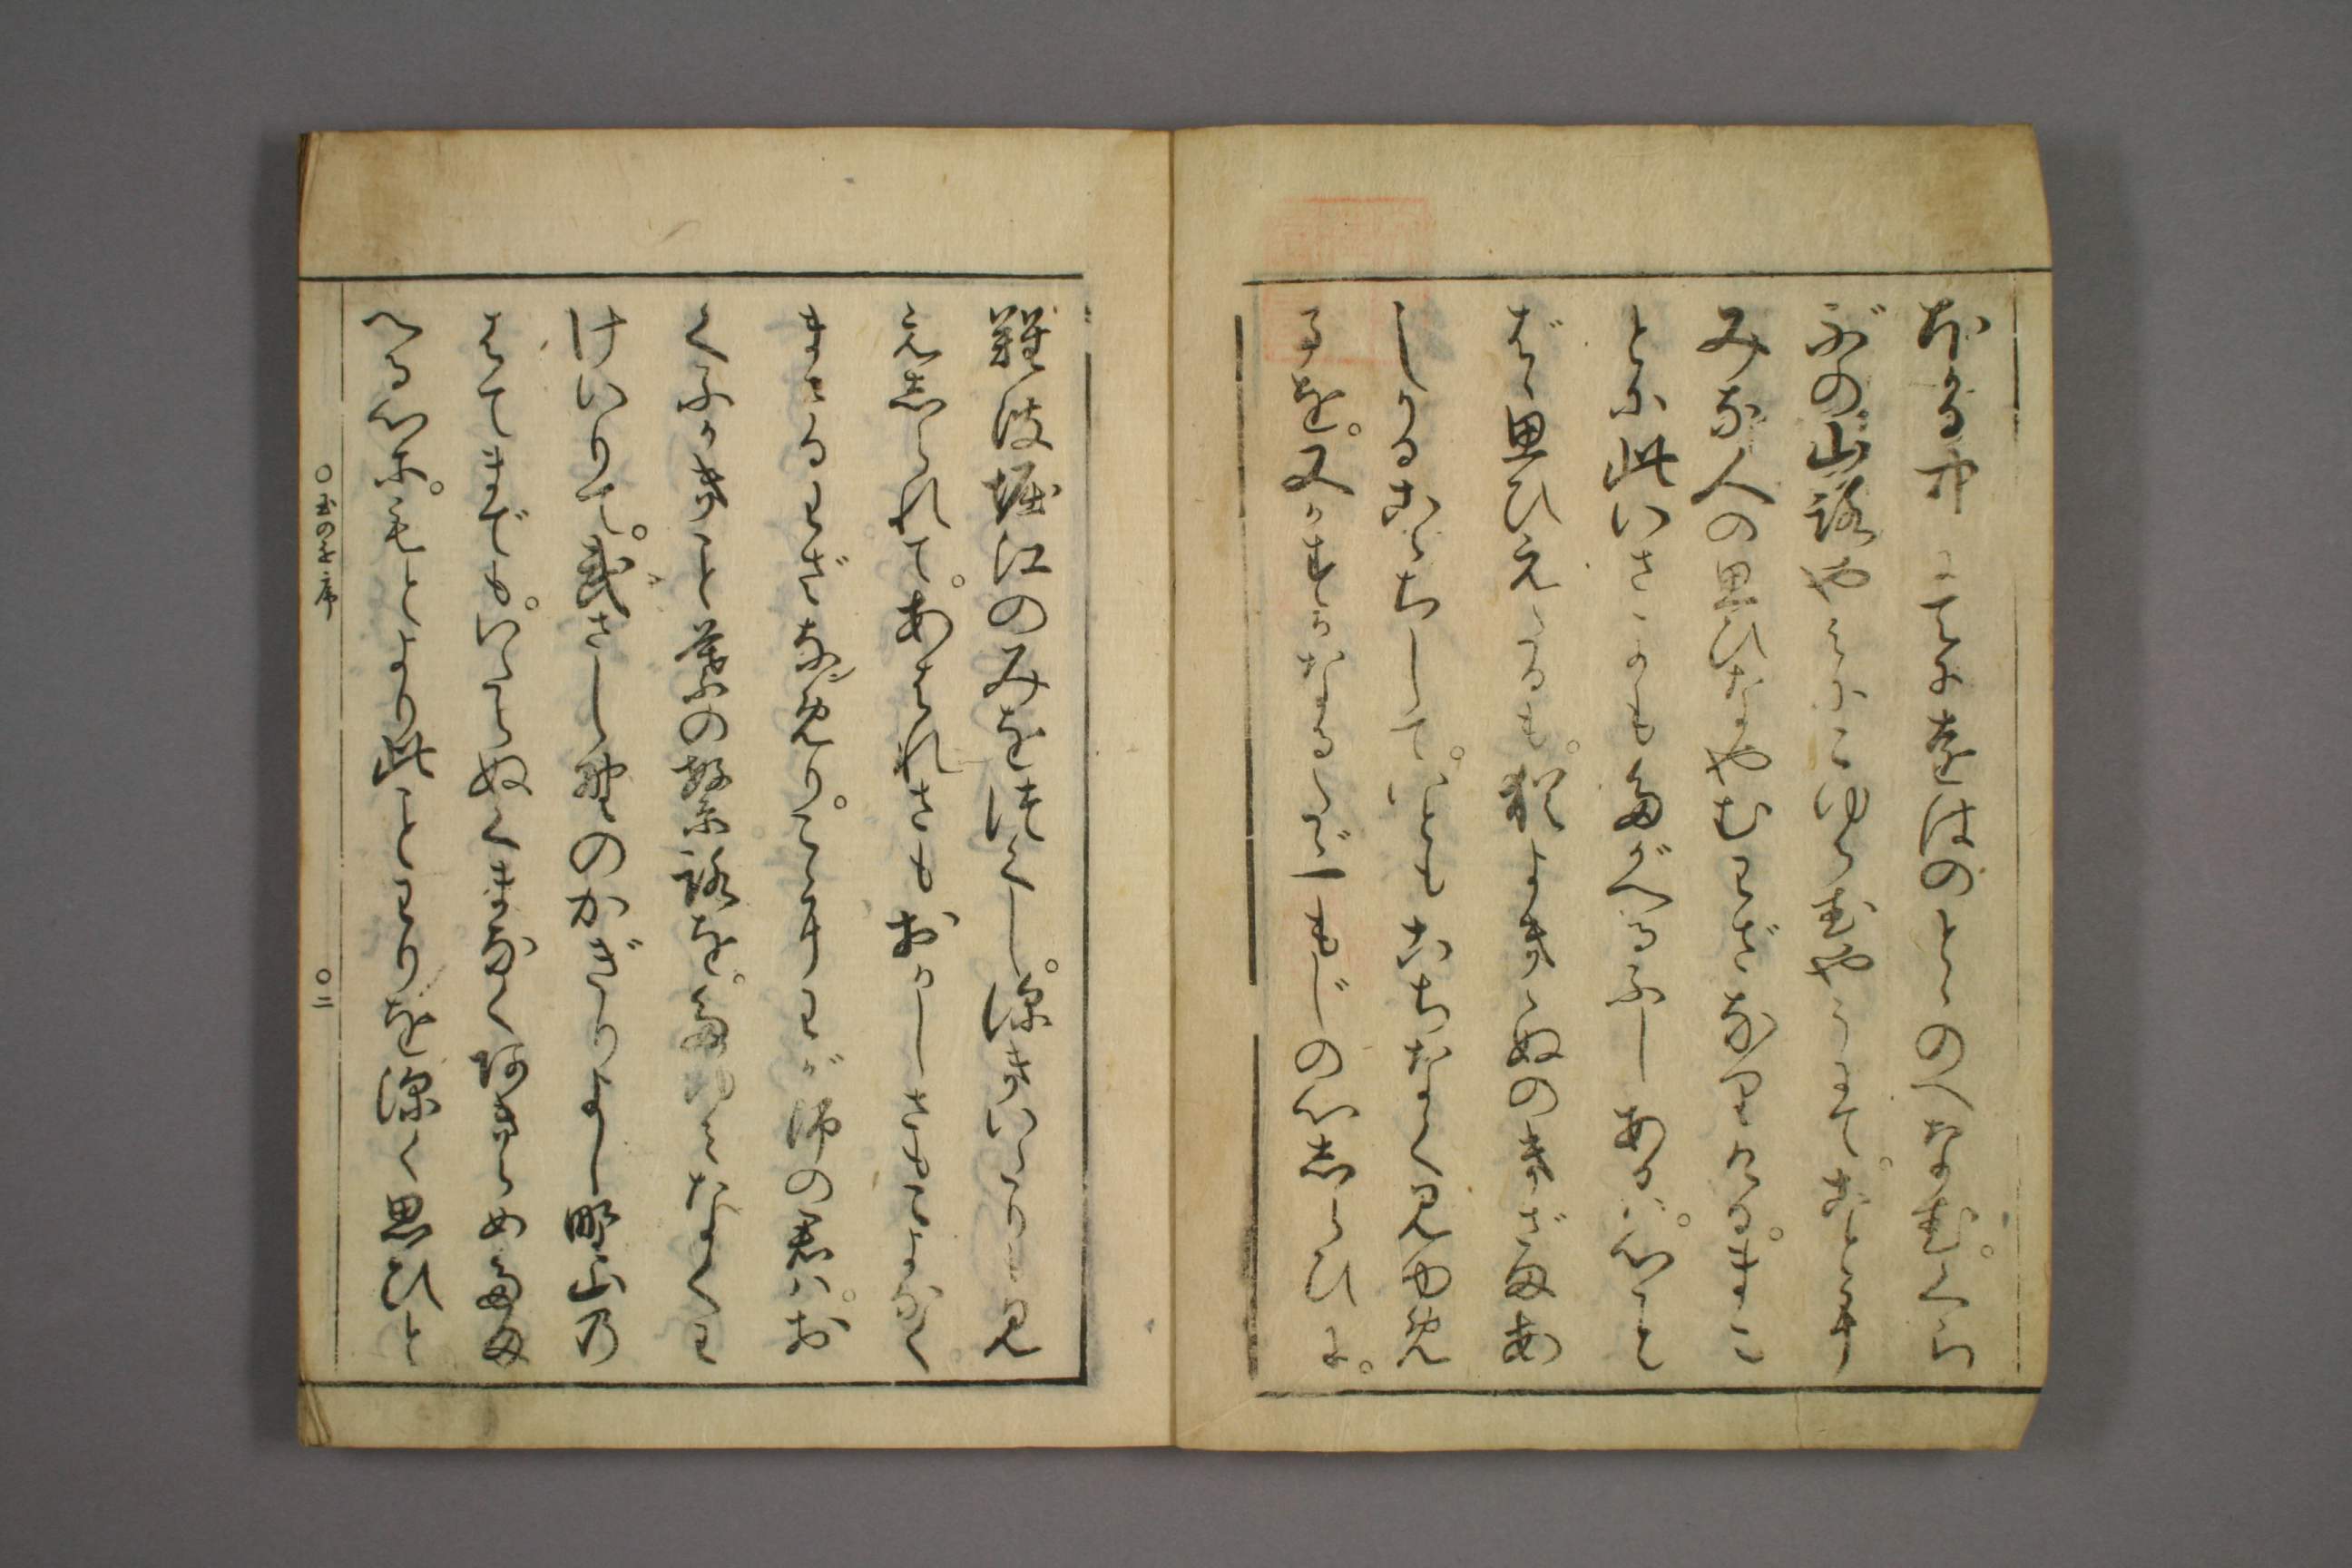 ほる中にてにをはのとゝのへなむ。くら
ぶの山路やみにこゆらむやうにて。こときは
みな人の思ひなやむわざなりける。まこ
とに此いさゝかもたがへるふしあれば。心こと
ばゝ思ひえたるも。猶よきゝぬのきざまあ
しかるこゝちして。いともこちなく見ゆめ
るを。又かすかなるたゞ一もじの心しらひに。
難波堀江のみをつくし。深きいたりも見
えしられて。あはれさもおかしさもこよなく
まさるわざなめり。こゝにわが師の君は。お
くふかきこと葉の繁路を。たゆみなくわ
けいりて。武さし野のかぎりよし野山乃
はてまでも。いたらぬくまなくあきらめたま
へる心に。もとより此ことわりを深く思ひと
○玉のを序 ○二